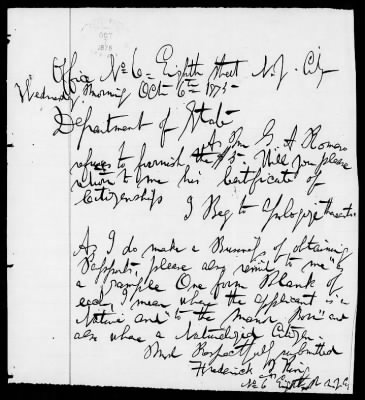 OCT
7
1875
Office No 6 - Eighth street N.Y. City
Wednesday Morning Oct 6th 1875 -
Department of State
As Mr G A Romero
refuses to furnish the $5 - Will you please
return to me his Certificate of
Citizenship
I Beg to Apologize
As I do make a Business of obtaining
Passports, please also remit to me "as
a sample One form Blank of
each I mean where the applicant is a
Native and "to the Manor Born" and
also where a Naturalized Citizen -
Most Respectfully submitted
Frederick
No 6 Eighth St N.Y. City